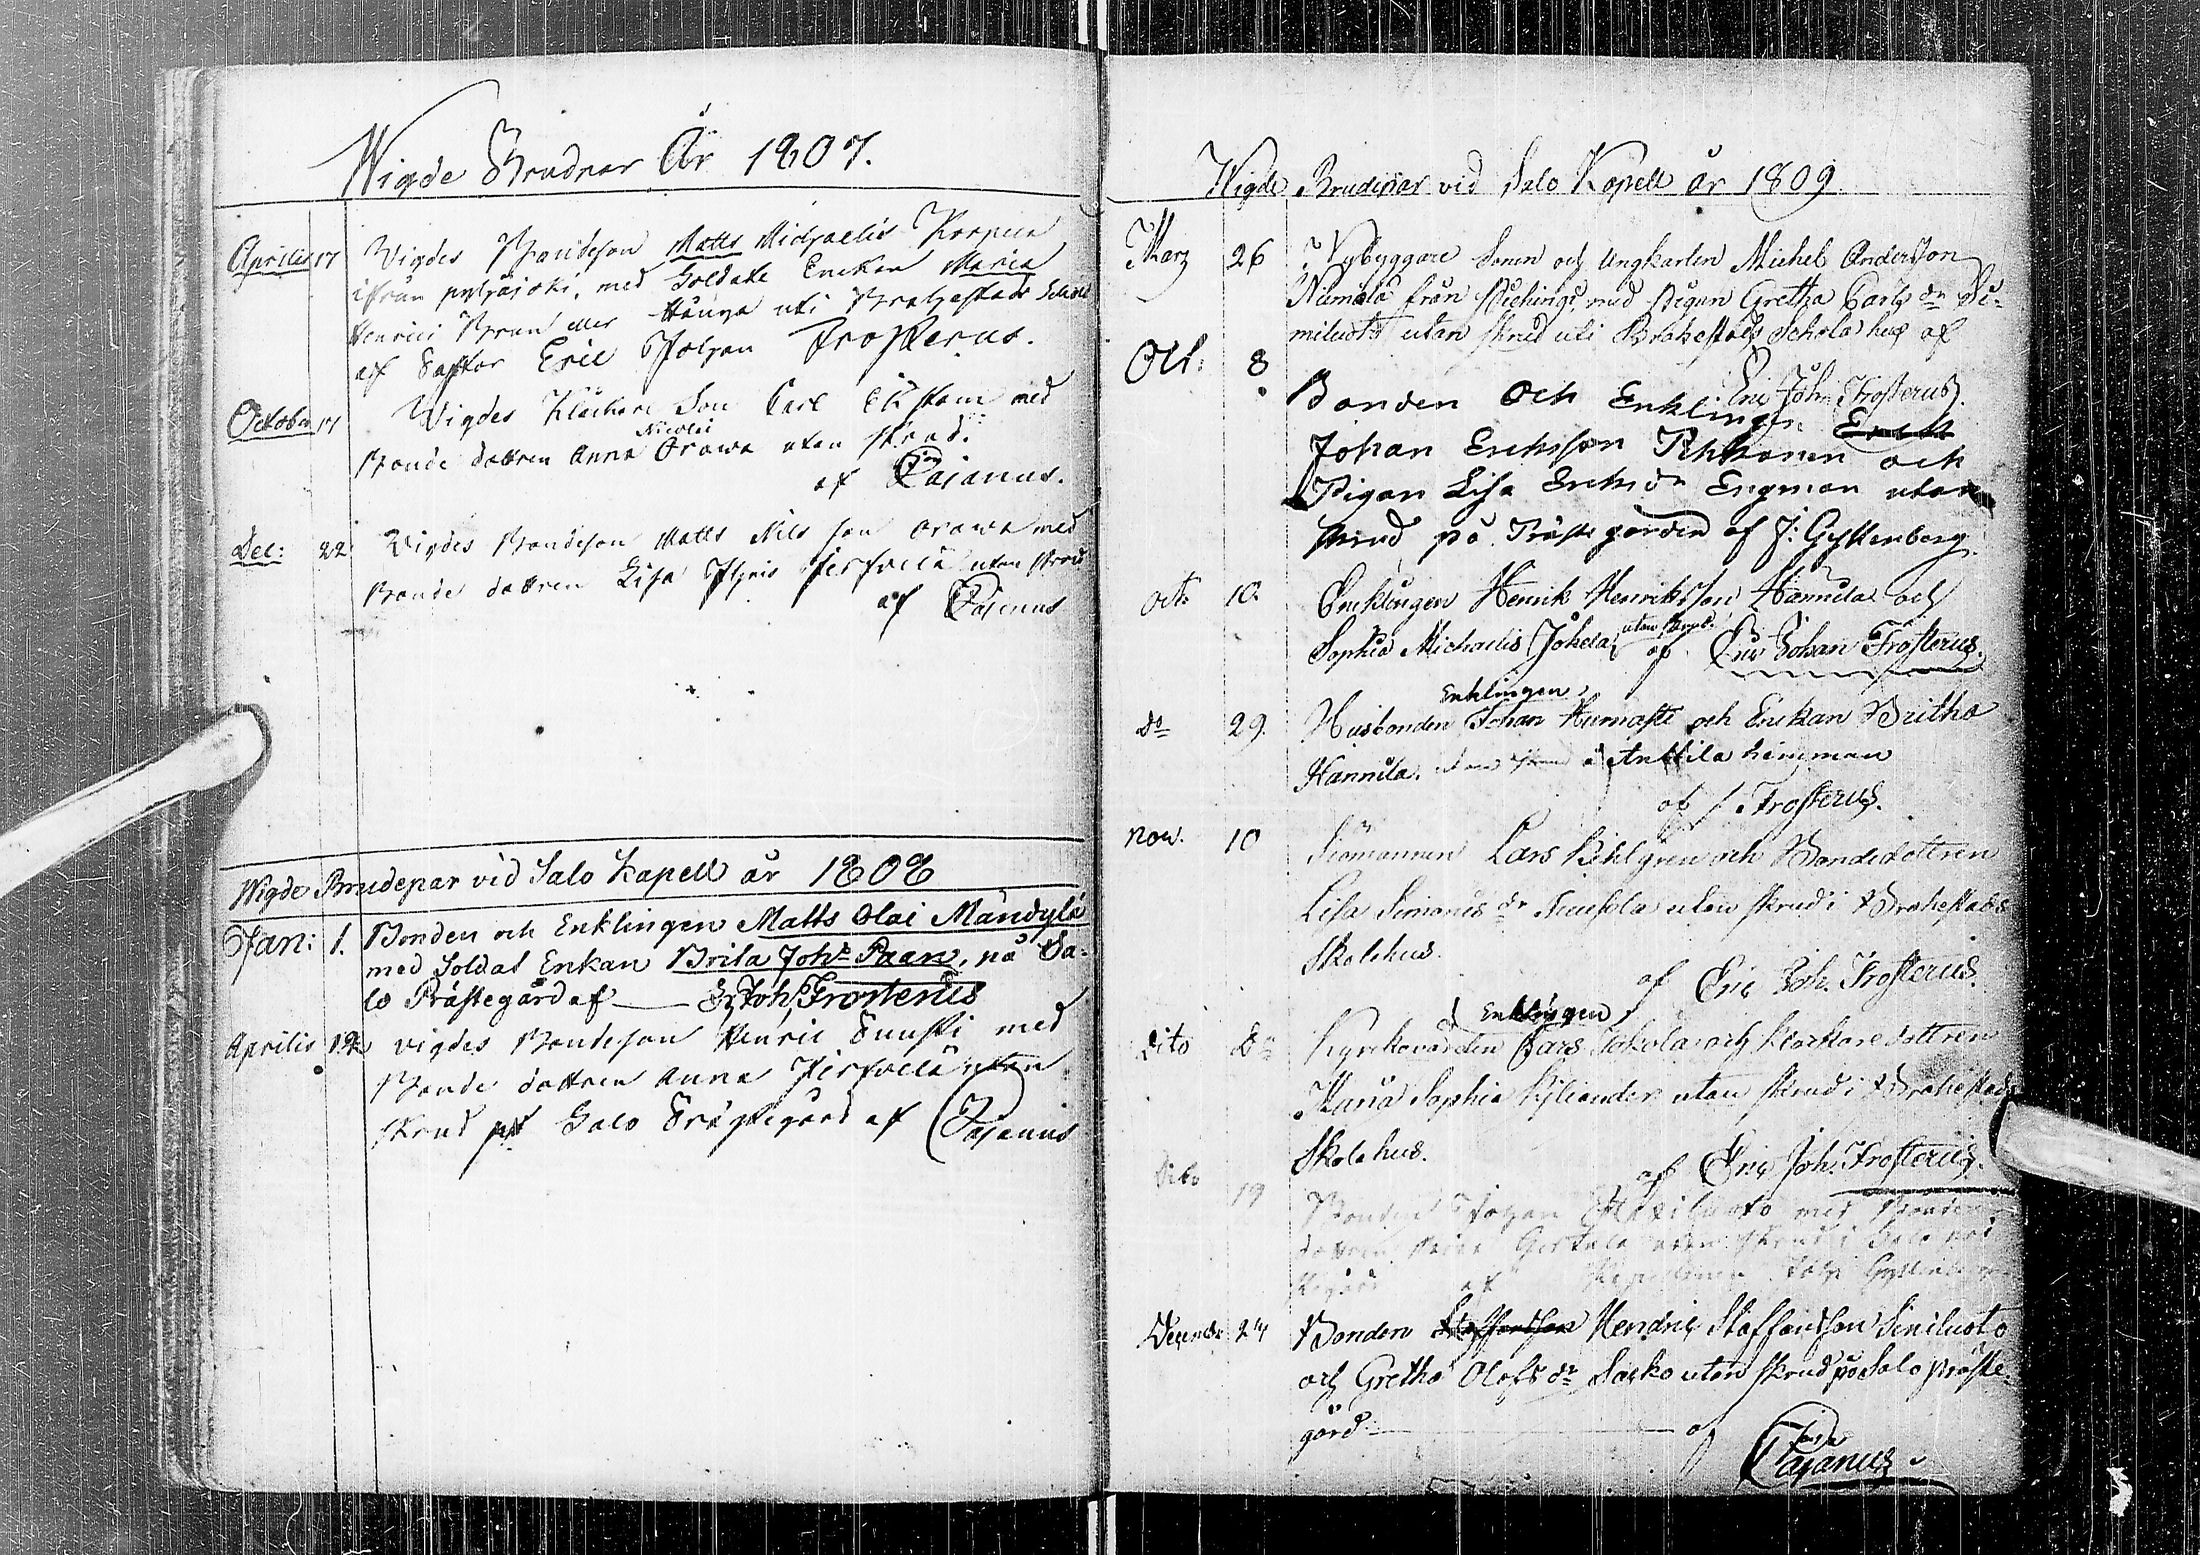 Wigde Brudpar År 1807.
Aprilis 17 Vigdes Bondeson Matts Michaelis Korpela
ifrån pyhäjoki, med Soldate Enckan Maria
Henrici Brun uti Brahestads Schol
af Pastor Eric Johan Frosterus.
October 17 Wigdes Klåckare Son Carl Ekstam med
Bonde dottren Anna Nicolai Orawa utan skrud.
af Pajanus.
Dec: 22 Vigdes Bondeson Matts Nils son Orawa med
Bonde dottren Lisa utan skrud
af Pajanus
Wigde Brudepar vid Salo Kapell år 1808
Jan: 1. Bonden och Enklingen Matts Olai Mändylä
med Soldat Enkan Brita Johs Paan, på Sa-
lo Prästegård af Er Joh Frosterus
Aprilis 19 vigdes Bondeson Henric Suuski med
Bonde dottren Anna Hirfvelä utan
skrud på Salo Prästegård af Pajanus
Wigde Brudepar vid Salo Kapell år 1809
Marz 26 Nybyggare Sonen och Ungkarlen Michel Andersson
Niemelä från med Pigan Gretha Carls dr Si-
miluoto utan skrud uti Brahestads Schola hus af
Eric Joh. Frosterus.
Oct: 8 Bonden Och Enklingen
Johan Ericksson Pehkonen och
Pigan Lisa Ericks dr Engman utan
skrud på Prästegården af J: Gyllenberg.
Oct: 10. Encklingen Henrik Henriksson Hannila och
Sophia Michaelis Jokela utan skrud. af Eric Johan Frosterus.
Do 29. Husbonden Enklingen Johan Hurnasti och Enckan Britha
Hannila, utan skrud i Anttila hemman
af / Frosterus.
Nov. 10 Siömannen Lars Kihlgren och Bondedottren
Lisa Simonis dr utan skrud i Brahestads
Skolehus.
af Eric Joh. Frosterus.
Dito Do Kyrckovärden Enklingen Lars Jokela och Klockare dottren
Maria Sophia Kiliander utan skrud i Brahestads
Skolehus.
af Eric Joh. Frosterus.
Dito 19 Bonden Johan Similuoto med Bonde
dottren Maria utan skrud i Salo prä
stegård af Kapellanen Joh Gyllenberg
December 24 Bonden Hendric Staffansson Similuoto
och Gretha Olofs dr Sarko utan skrud på Salo präste-
gård af
Pajanus